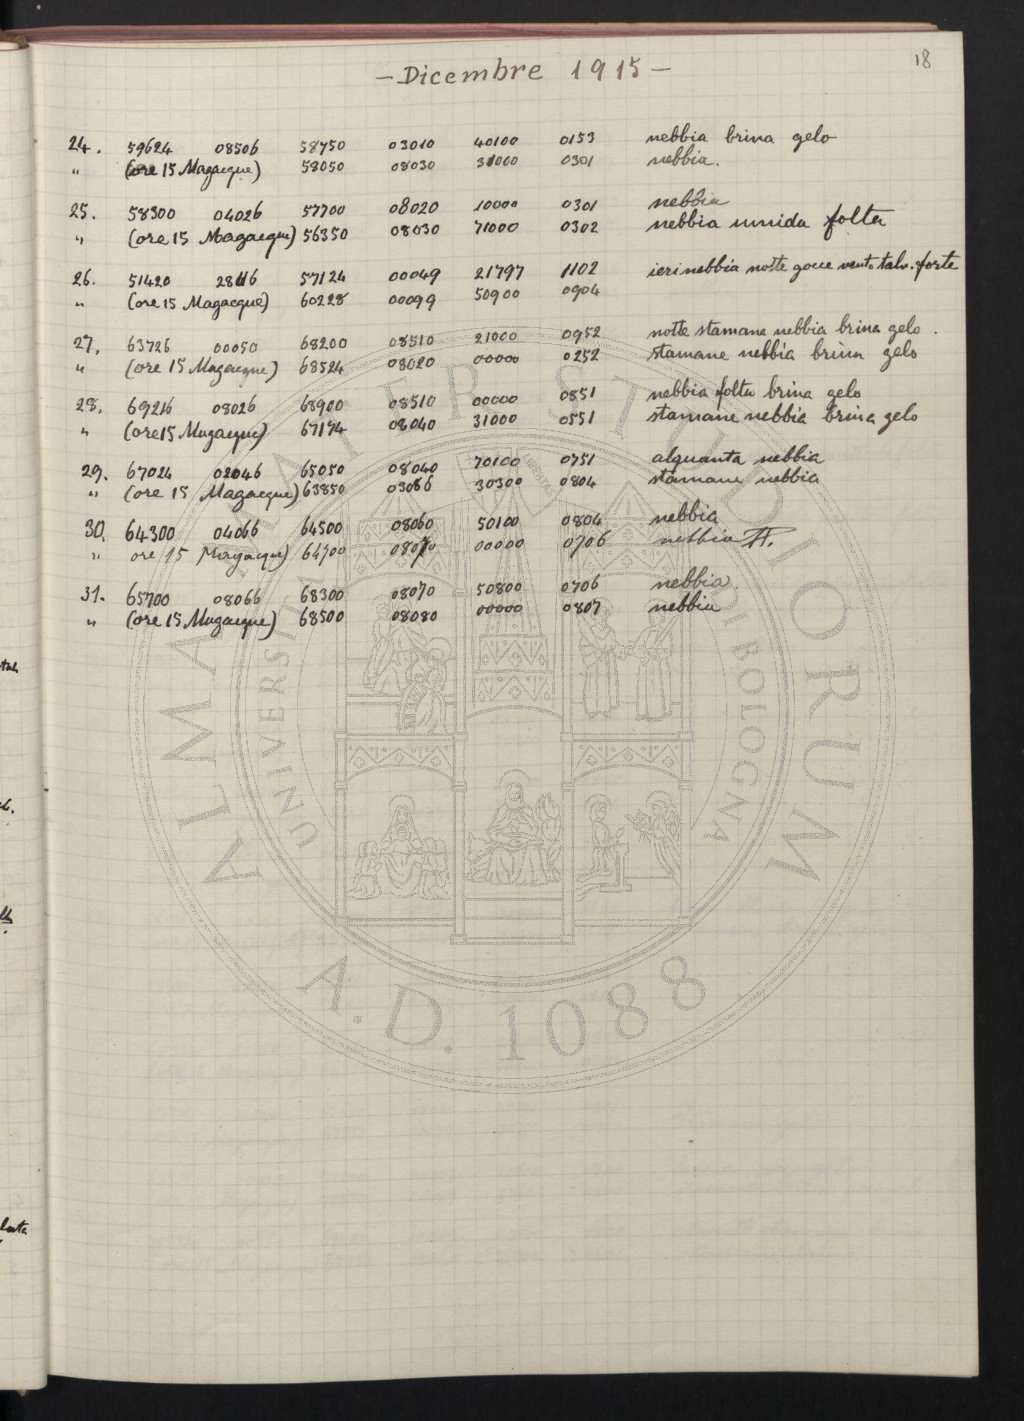 18
– Dicembre 1915 –
24. 59624 08506 58750 03010 40100 0153 nebbia brina gelo
" (ore 15 Magacque) 58050 08030 31000 0301 nebbia.
25. 58300 04026 57700 08020 10000 0301 nebbia
" (ore 15 Magacque) 56350 08030 71000 0302 nebbia umida folta
26. 51420 28116 57124 00049 21797 1102 ieri nebbia notte gocce vento talv. forte
" (ore 15 Magacque) 60228 00099 50900 0904
27. 63726 00050 68200 08510 21000 0952 notte stamane nebbia brina gelo.
" (ore 15 Magacque) 68524 08020 00000 0252 stamane nebbia brina gelo
28. 69216 08026 68900 08510 00000 0851 nebbia folta brina gelo
" (ore 15 Magacque) 67174 08040 31000 0551 stamane nebbia brina gelo
29. 67024 02046 65050 08040 70100 0751 alquanta nebbia
" (ore 15 Magacque) 63850 03086 30300 0804 stamane nebbia
30. 64300 04066 64500 08060 50100 0804 nebbia
" ore 15 Magacque) 64700 08070 00000 0706 nebbia
31. 65700 08066 68300 08070 50800 0706 nebbia.
" (ore 15 Magacque) 68500 08080 00000 0807 nebbia
ALMA MATER STUDIORUM
UNIVERSITÀ DI BOLOGNA
A.D. 1088